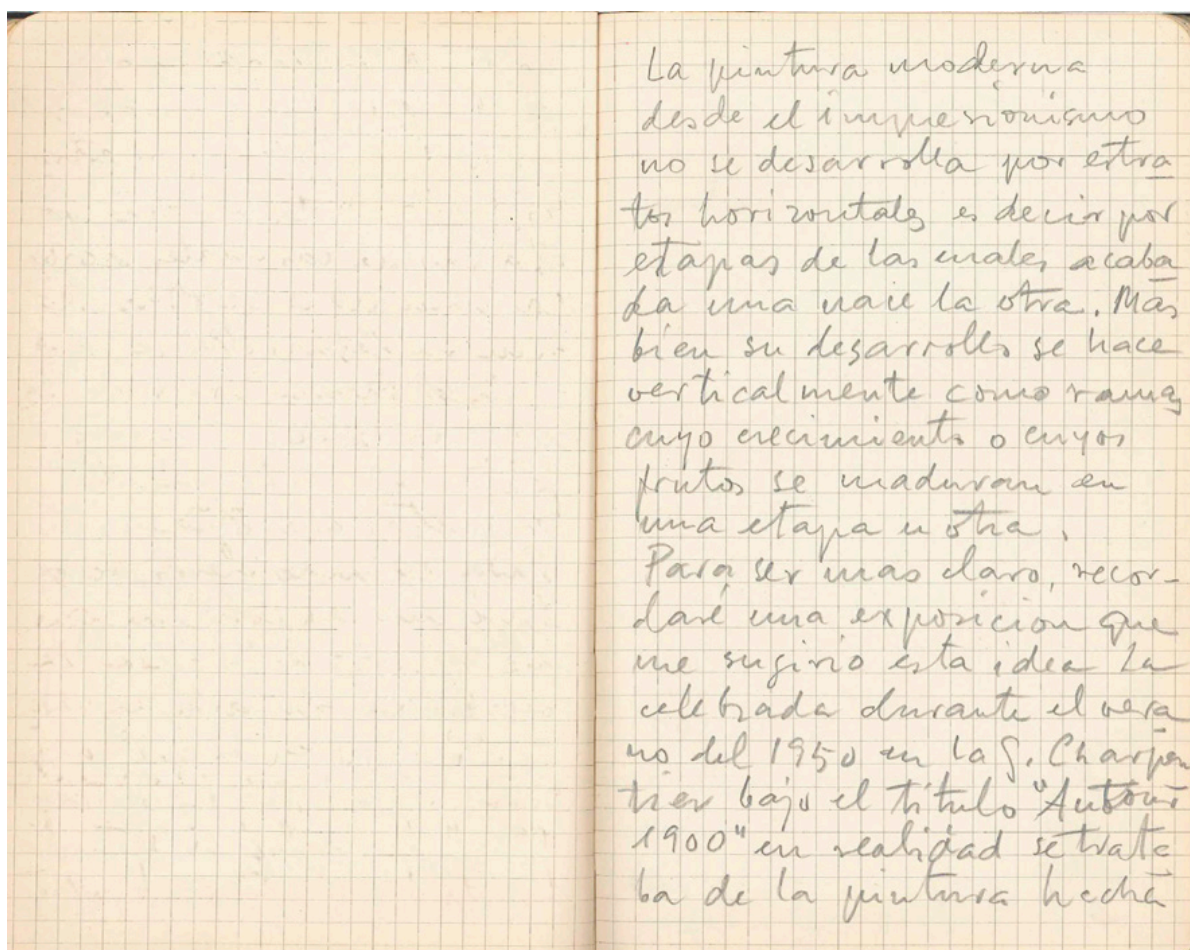 La pintura moderna
desde el impresionismo
no se desarrolla por estra
tos horizontales es decir por
etapas de las cuales acaba
da una nace la otra. Más
bien su desarrollo se hace
verticalmente como ramas
cuyo crecimiento o cuyos
frutos se maduran en
una etapa u otra.
Para ser mas claro, recor-
daré una exposición que
me sugirio esta idea La
celebrada durante el vera
no del 1950 en la G. Charpen
tier bajo el título "Autour
1900" en realidad se trata
ba de la pintura hecha